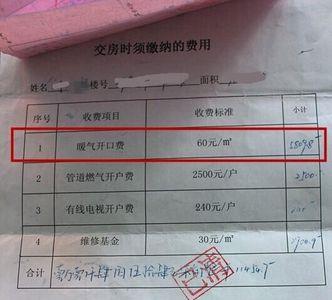 交房时须缴纳的费用
姓名 楼号 面积
序号 收费项目 收费标准 小计
1 暖气开口费 60元/㎡
2 管道燃气开户费 2500元/户 2500
3 有线电视开户费 240元/户
4 维修基金 30元/㎡
合计